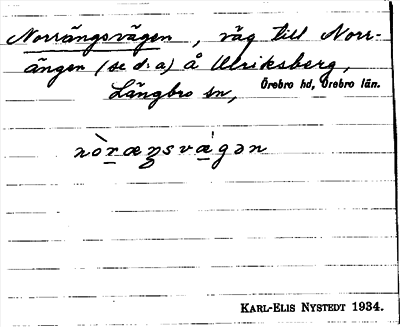 Norrängsvägen, väg till Norr-
ängen (se d:a) å Ulriksberg,
Längbro sn, Örebro hd, Örebro län.
nòræŋsvǽgən
KARL-ELIS NYSTEDT 1934.